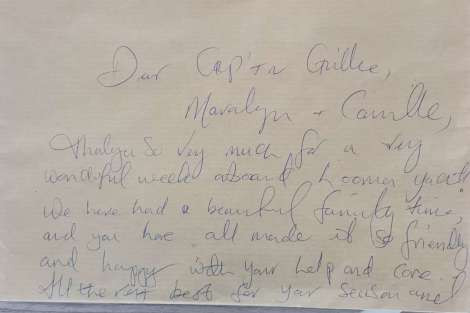 Dear Cap't
Maralyn + Camille,
Thankyou so very much for a very
wonderful week aboard yacht
We have had a beautiful family time,
and you have all made it so friendly
and happy with your help and care.
All the very best for your season and